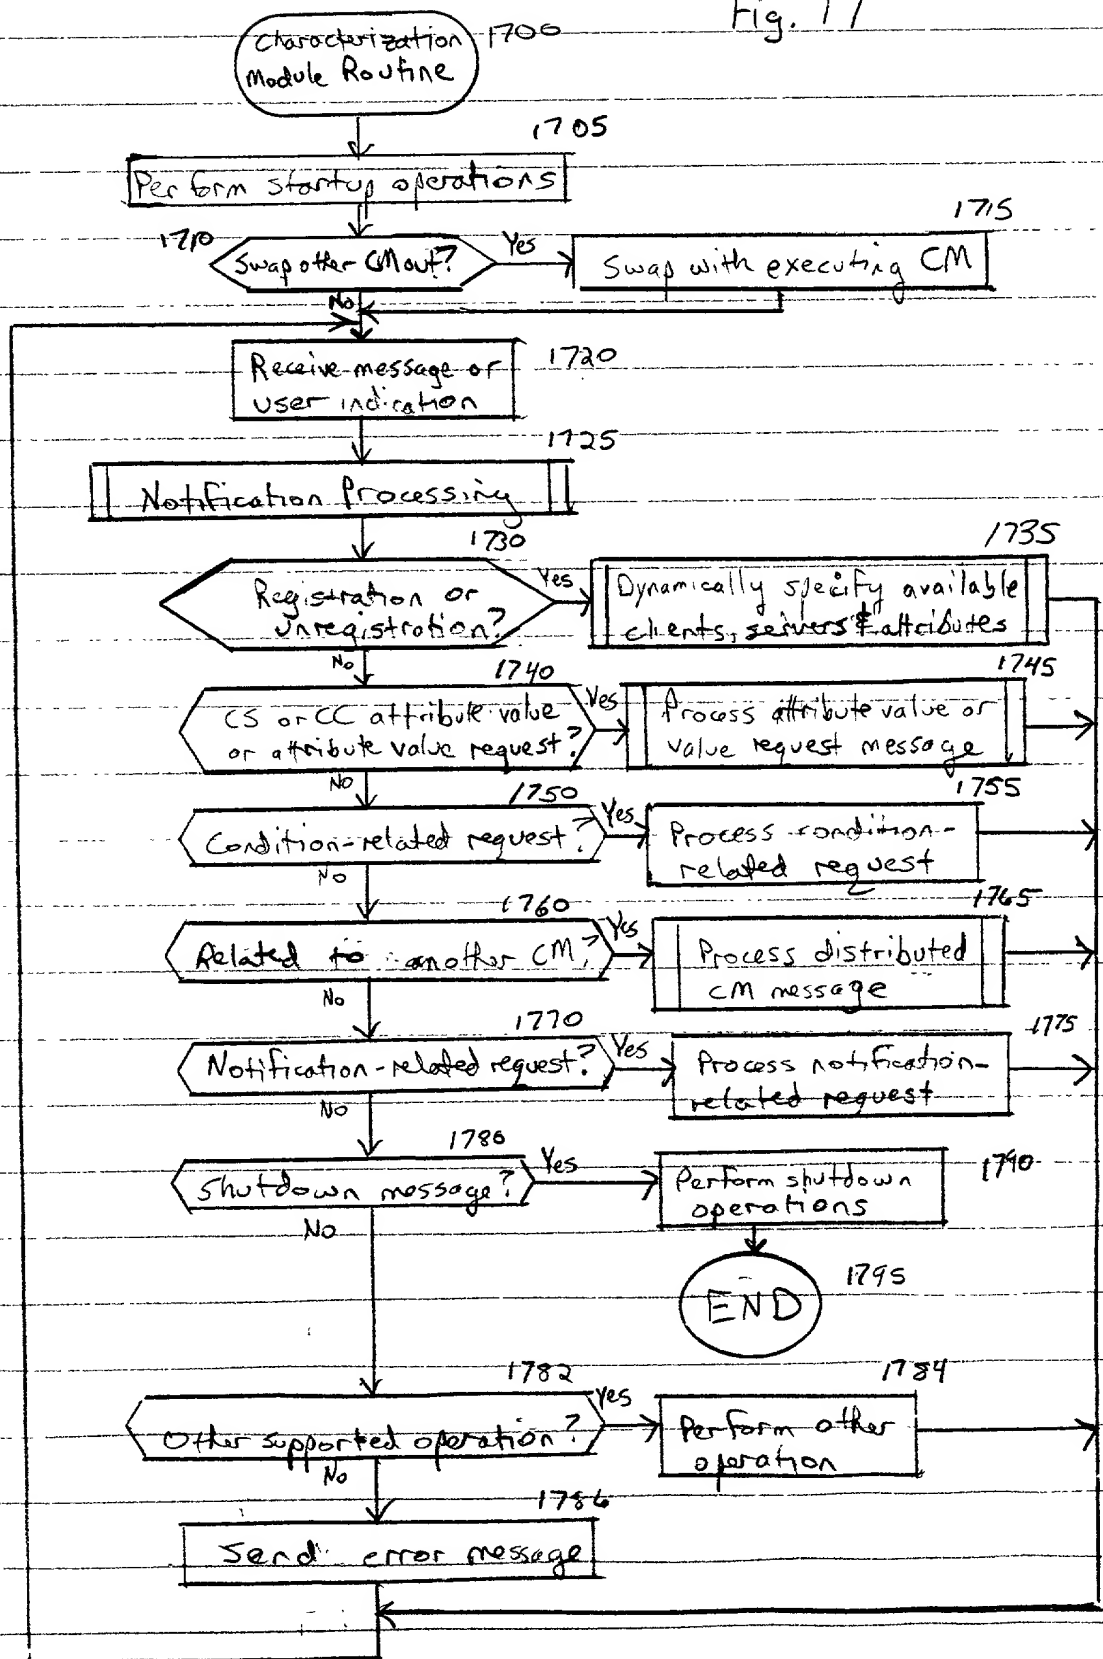 Fig. 17
Characterization
Module Routine
1700
1705
Perform startup operations
1710
Swap other CM out?
Yes
1715
Swap with executing CM
No
Receive message or
user indication
1720
1725
Notification Processing
1730
Registration or
unregistration?
Yes
1735
Dynamically specify available
clients, servers & attributes
No
1740
CS or CC attribute value
or attribute value request?
Yes
1745
Process attribute value or
value request message
No
1750
Condition-related request?
Yes
1755
Process condition-
related request
No
1760
Related to another CM?
Yes
1765
Process distributed
CM message
No
1770
Notification-related request?
Yes
1775
Process notification-
related request
No
1780
Shutdown message?
Yes
Perform shutdown
operations
1790
No
END
1795
1782
Other supported operation?
Yes
1784
Perform other
operation
No
1786
Send error message